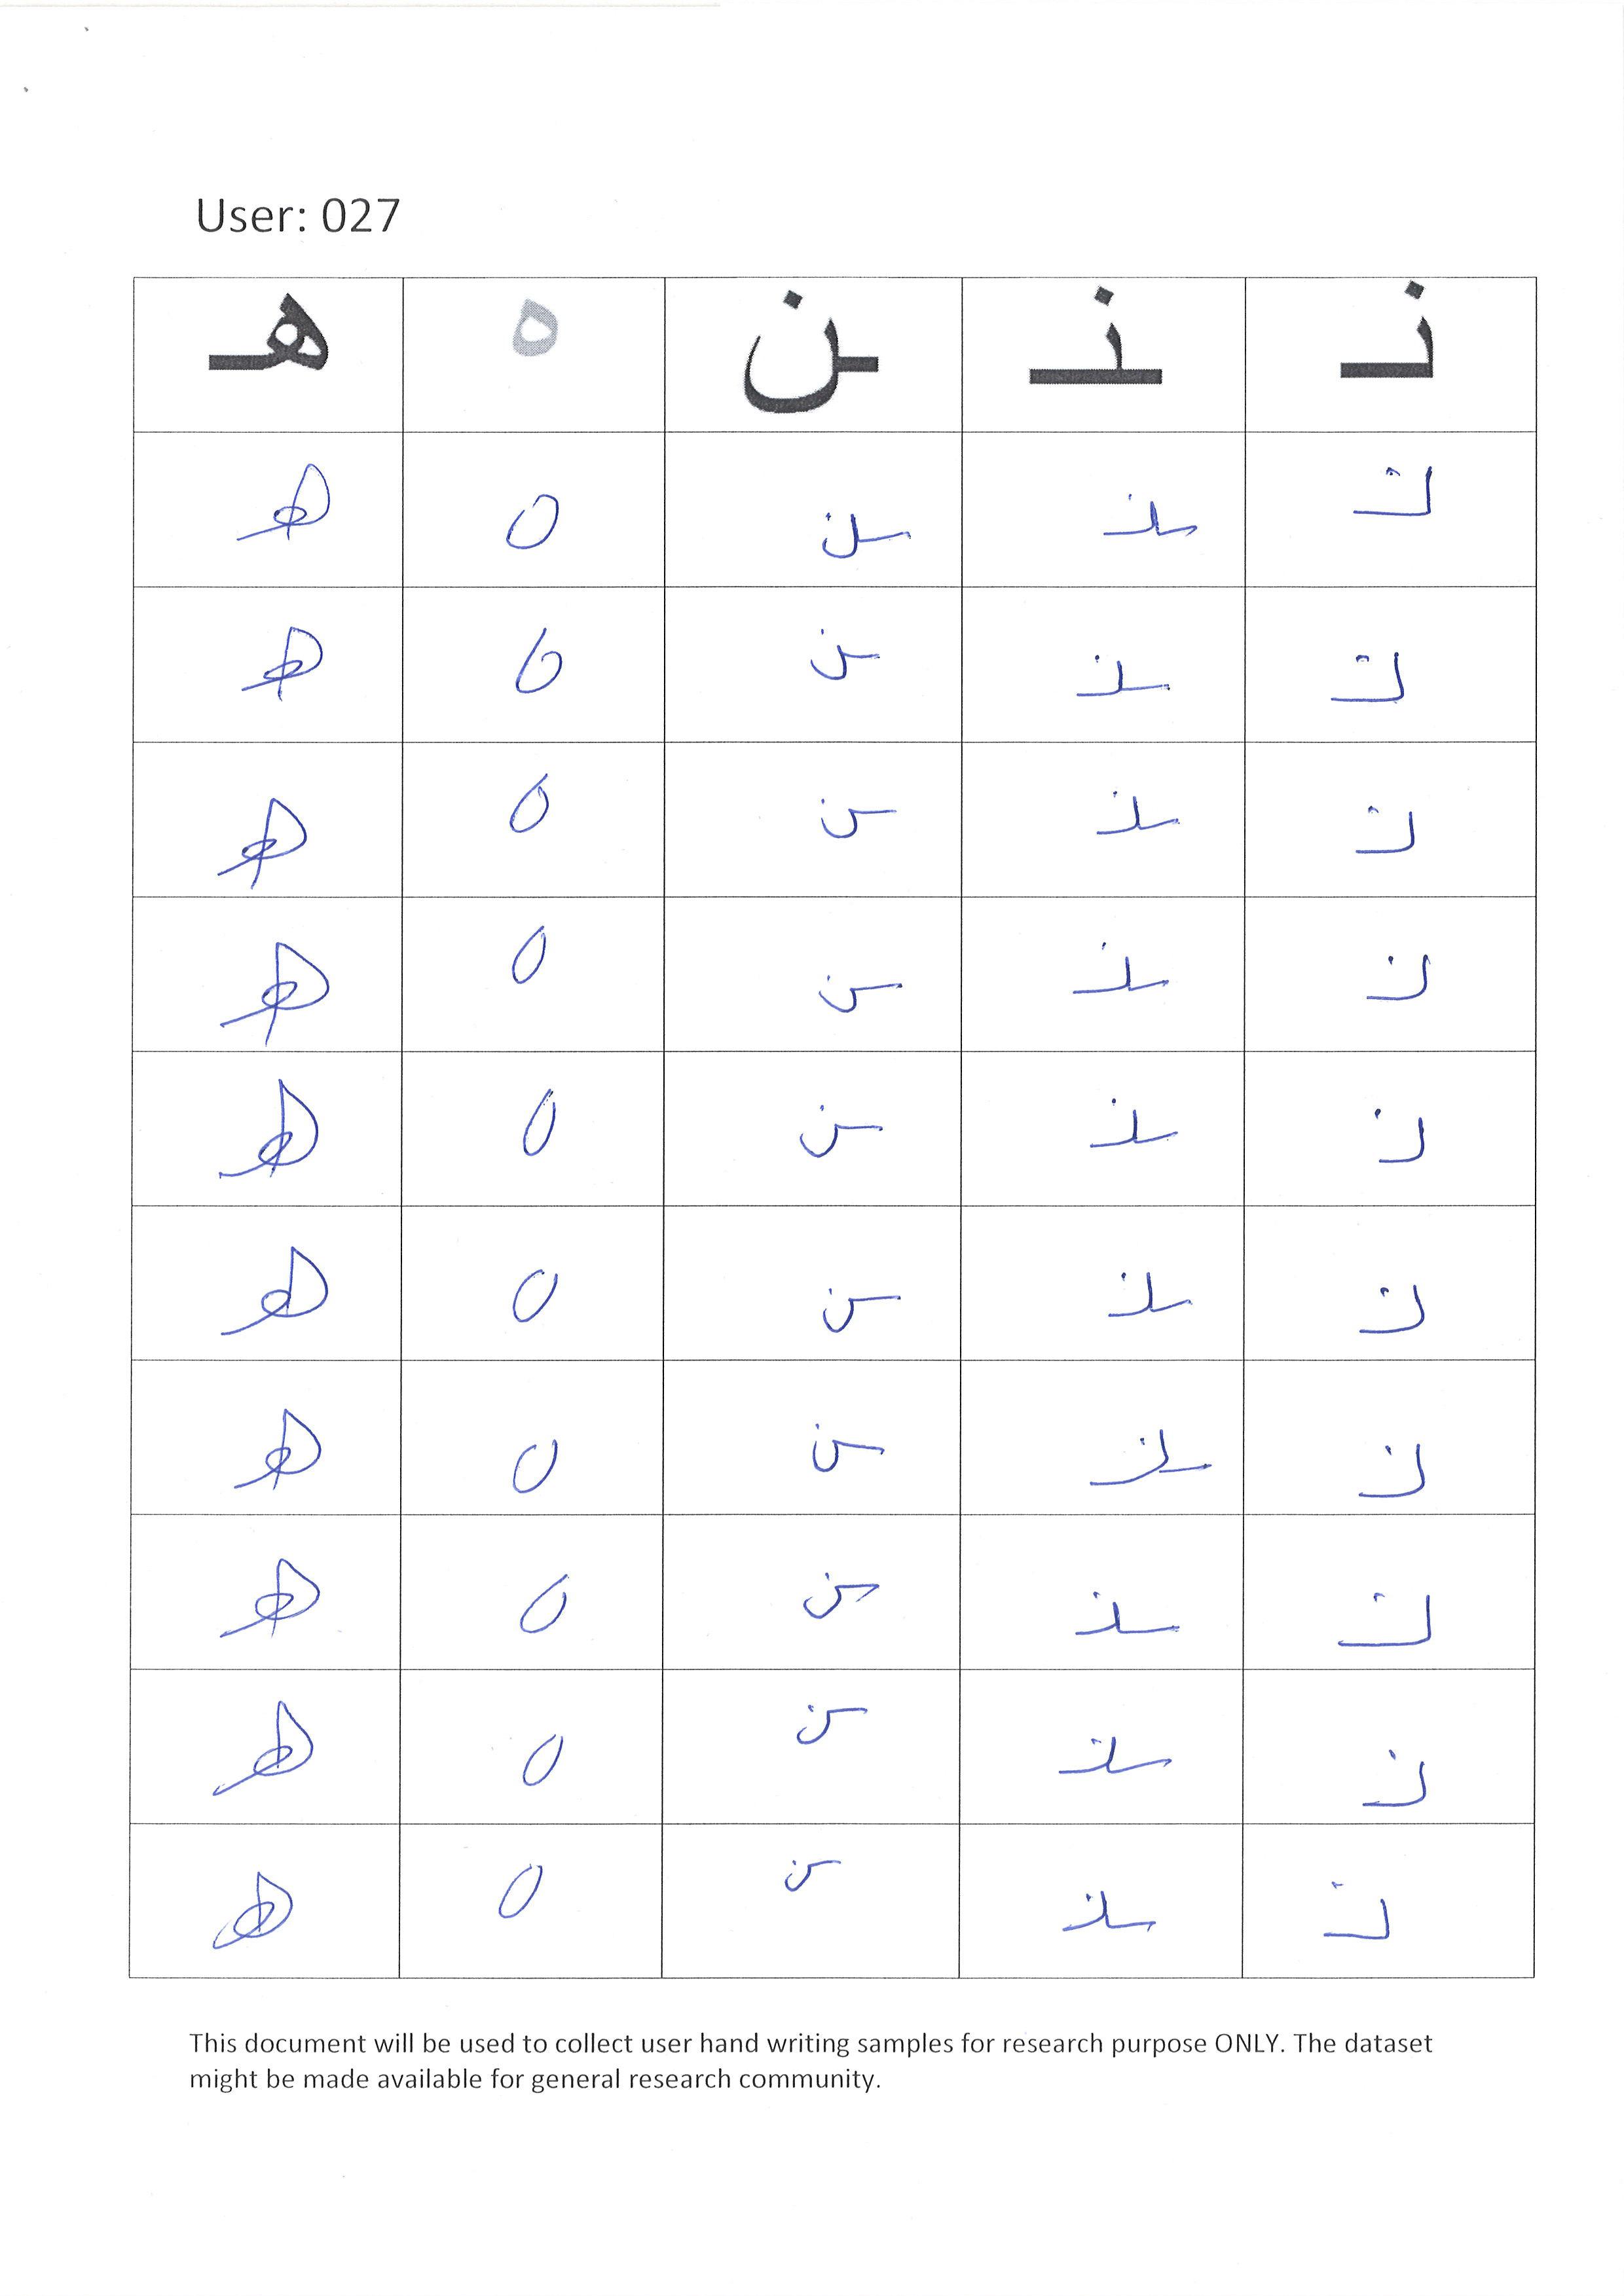 User: 027
نـ ـنـ ـن ه هـ
نـ ـنـ ـن ه هـ
نـ ـنـ ـن ه هـ
نـ ـنـ ـن ه هـ
نـ ـنـ ـن ه هـ
نـ ـنـ ـن ه هـ
نـ ـنـ ـن ه هـ
نـ ـنـ ـن ه هـ
نـ ـنـ ـن ه هـ
نـ ـنـ ـن ه هـ
نـ ـنـ ـن ه هـ
This document will be used to collect user hand writing samples for research purpose ONLY. The dataset
might be made available for general research community.